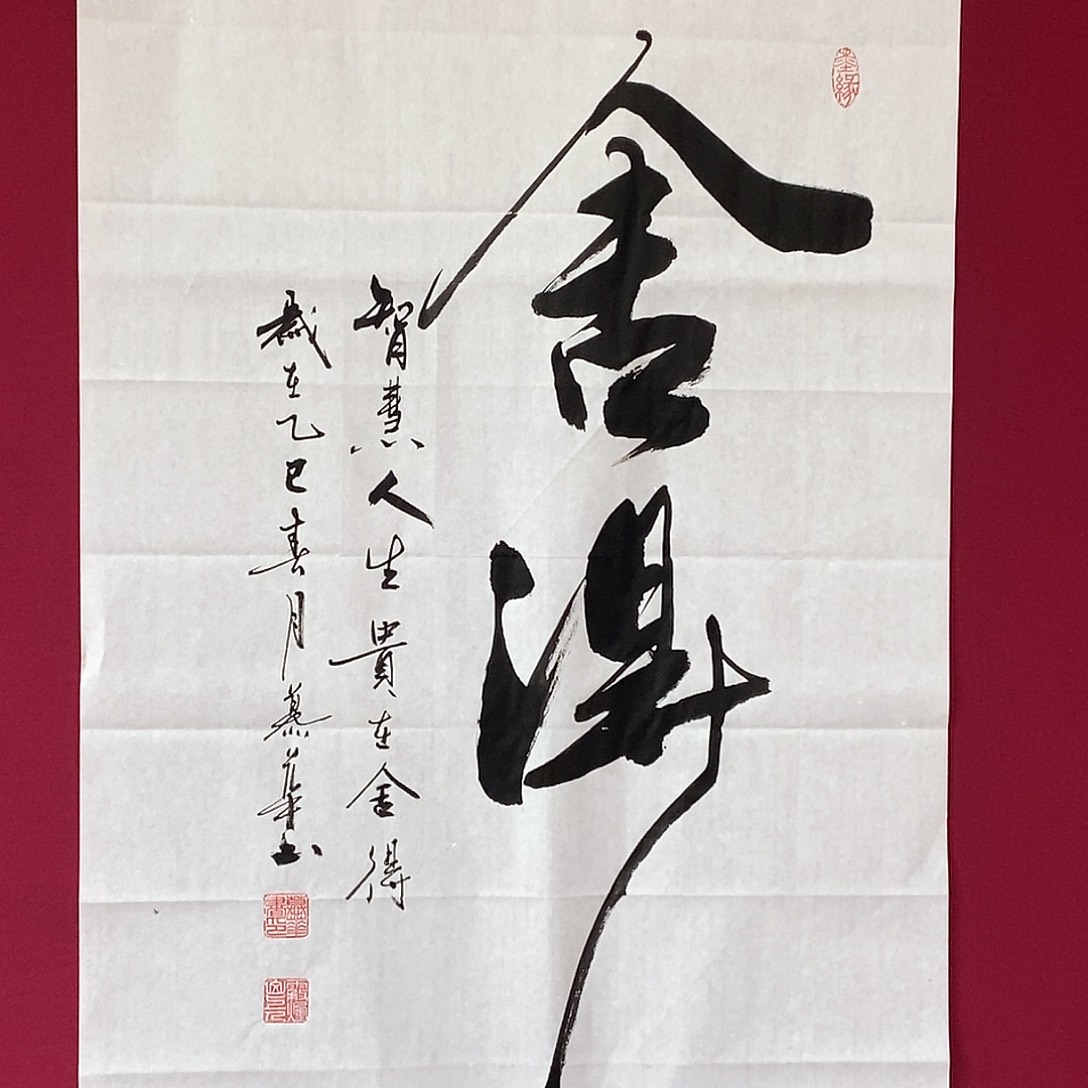 舍得
智慧人生貴在舍得
歲在乙巳春月慕華书
墨緣